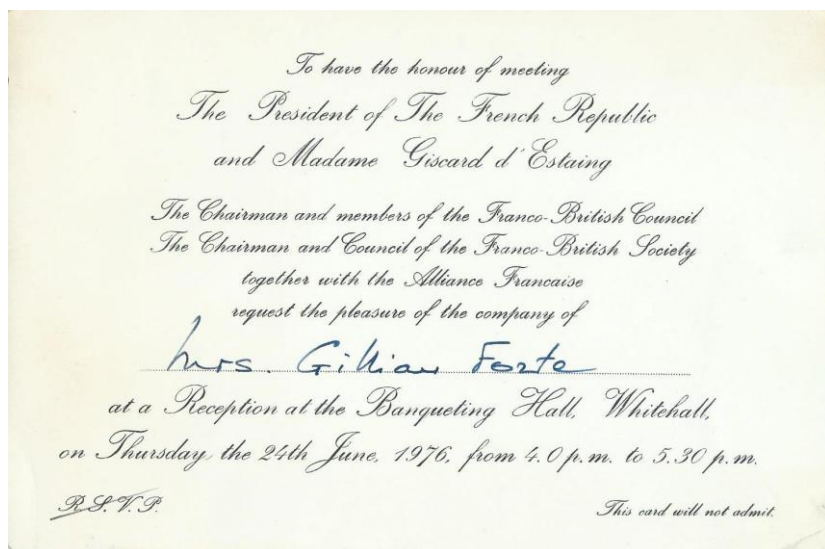 To have the honour of meeting
The President of The French Republic
and Madame Giscard d'Estaing
The Chairman and members of the Franco-British Council
The Chairman and Council of the Franco-British Society
together with the Alliance Francaise
request the pleasure of the company of
Mrs. Gillian Forte
at a Reception at the Banqueting Hall, Whitehall,
on Thursday, the 24th June, 1976, from 4.0 p.m. to 5.30 p.m.
R.S.V.P.
This card will not admit.